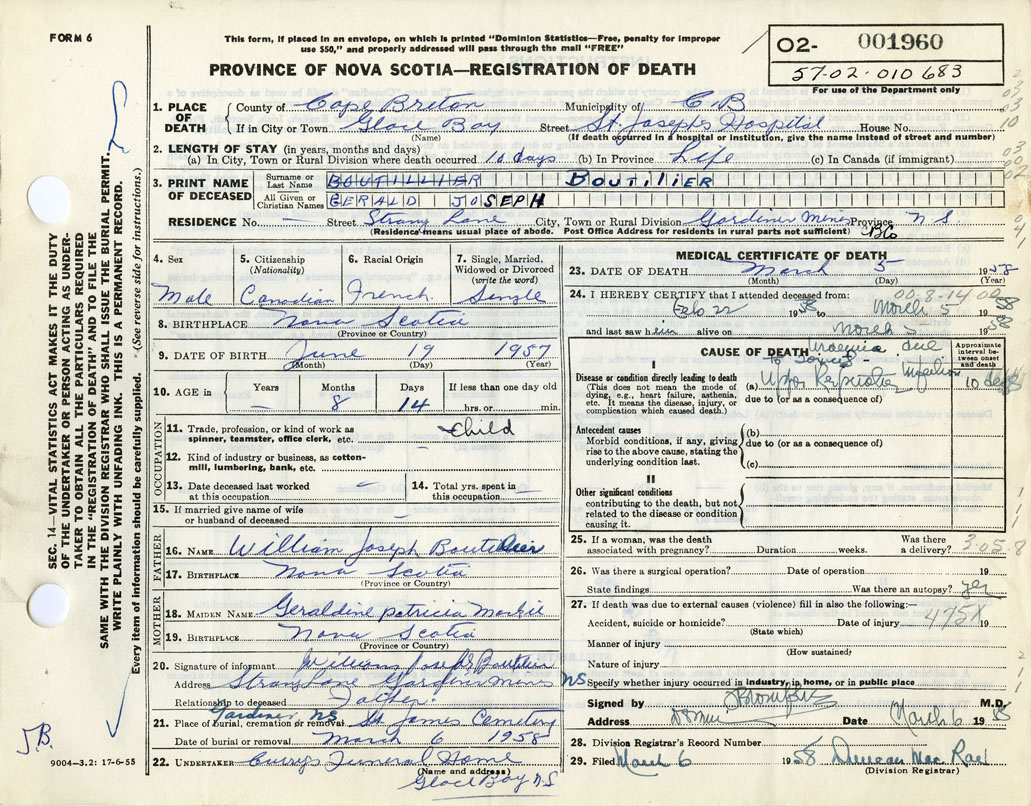 FORM 6
This form, if placed in an envelope, on which is printed "Dominion Statistics—Free, penalty for improper
use $50," and properly addressed will pass through the mail "FREE"
PROVINCE OF NOVA SCOTIA—REGISTRATION OF DEATH
02- 001960
57-02-010683
For use of the Department only
1. PLACE OF DEATH
County of Cape Breton Municipality of C B
If in City or Town Glace Bay Street St. Josephs Hospital House No.
(Name) (If death occurred in a hospital or institution, give the name instead of street and number)
2. LENGTH OF STAY (in years, months and days)
(a) In City, Town or Rural Division where death occurred 10 days (b) In Province Life (c) In Canada (if immigrant)
3. PRINT NAME OF DECEASED
Surname or Last Name BOUTILLIER BOUTILIER
All Given or Christian Names GERALD JOSEPH
RESIDENCE No. — Street Strang Lane City, Town or Rural Division Gardiner Mines Province N S
(Residence means usual place of abode. Post Office Address for residents in rural parts not sufficient)
4. Sex
Male
5. Citizenship
(Nationality)
Canadian
6. Racial Origin
French
7. Single, Married, Widowed or Divorced
(write the word)
Single
8. BIRTHPLACE Nova Scotia
(Province or Country)
9. DATE OF BIRTH June 19 1957
(Month) (Day) (Year)
10. AGE in
Years —
Months 8
Days 14
If less than one day old
hrs. or min.
OCCUPATION
11. Trade, profession, or kind of work as
spinner, teamster, office clerk, etc. Child
12. Kind of industry or business, as cotton-
mill, lumbering, bank, etc. —
13. Date deceased last worked
at this occupation —
14. Total yrs. spent in
this occupation —
15. If married give name of wife
or husband of deceased —
FATHER
16. NAME William Joseph Boutilier
17. BIRTHPLACE Nova Scotia
(Province or Country)
MOTHER
18. MAIDEN NAME Geraldine Patricia
19. BIRTHPLACE Nova Scotia
(Province or Country)
20. Signature of informant William Joseph Boutilier
Address Strang Lane Gardiner Mines NS
Relationship to deceased Father
Gardiner NS
21. Place of burial, cremation or removal St James Cemetery
Date of burial or removal March 6 1958
22. UNDERTAKER Currys Funeral Home
(Name and address)
Glace Bay N S
MEDICAL CERTIFICATE OF DEATH
23. DATE OF DEATH March 5 1958
(Month) (Day) (Year)
24. I HEREBY CERTIFY that I attended deceased from: 00-8-14-00
Feb 22 1958 to March 5 1958
and last saw him alive on March 5 1958
CAUSE OF DEATH
Approximate interval between onset and death
I
Disease or condition directly leading to death
(This does not mean the mode of
dying, e.g., heart failure, asthenia,
etc. It means the disease, injury, or
complication which caused death.)
due
(a) Upper Respiratory Infection 10 days
due to (or as a consequence of)
Antecedent causes
Morbid conditions, if any, giving
rise to the above cause, stating the
underlying condition last.
(b)
due to (or as a consequence of)
(c)
II
Other significant conditions
contributing to the death, but not
related to the disease or condition
causing it.
25. If a woman, was the death
associated with pregnancy? Duration weeks. Was there
a delivery? 3.05.8
26. Was there a surgical operation? Date of operation
State findings Was there an autopsy? yes
27. If death was due to external causes (violence) fill in also the following:—
Accident, suicide or homicide? Date of injury 19
(State which) 475X
Manner of injury
(How sustained)
Nature of injury
Specify whether injury occurred in industry, in home, or in public place
Signed by M.D.
Address Date March 6 1958
28. Division Registrar's Record Number
29. Filed March 6 1958 Duncan Mac Rae
(Division Registrar)
SEC. 14—VITAL STATISTICS ACT MAKES IT THE DUTY
OF THE UNDERTAKER OR PERSON ACTING AS UNDER-
TAKER TO OBTAIN ALL THE PARTICULARS REQUIRED
IN THE "REGISTRATION OF DEATH" AND TO FILE THE
SAME WITH THE DIVISION REGISTRAR WHO SHALL ISSUE THE BURIAL PERMIT.
WRITE PLAINLY WITH UNFADING INK. THIS IS A PERMANENT RECORD.
Every item of information should be carefully supplied. (See reverse side for instructions.)
J.B.
9004—3.2: 17-6-55